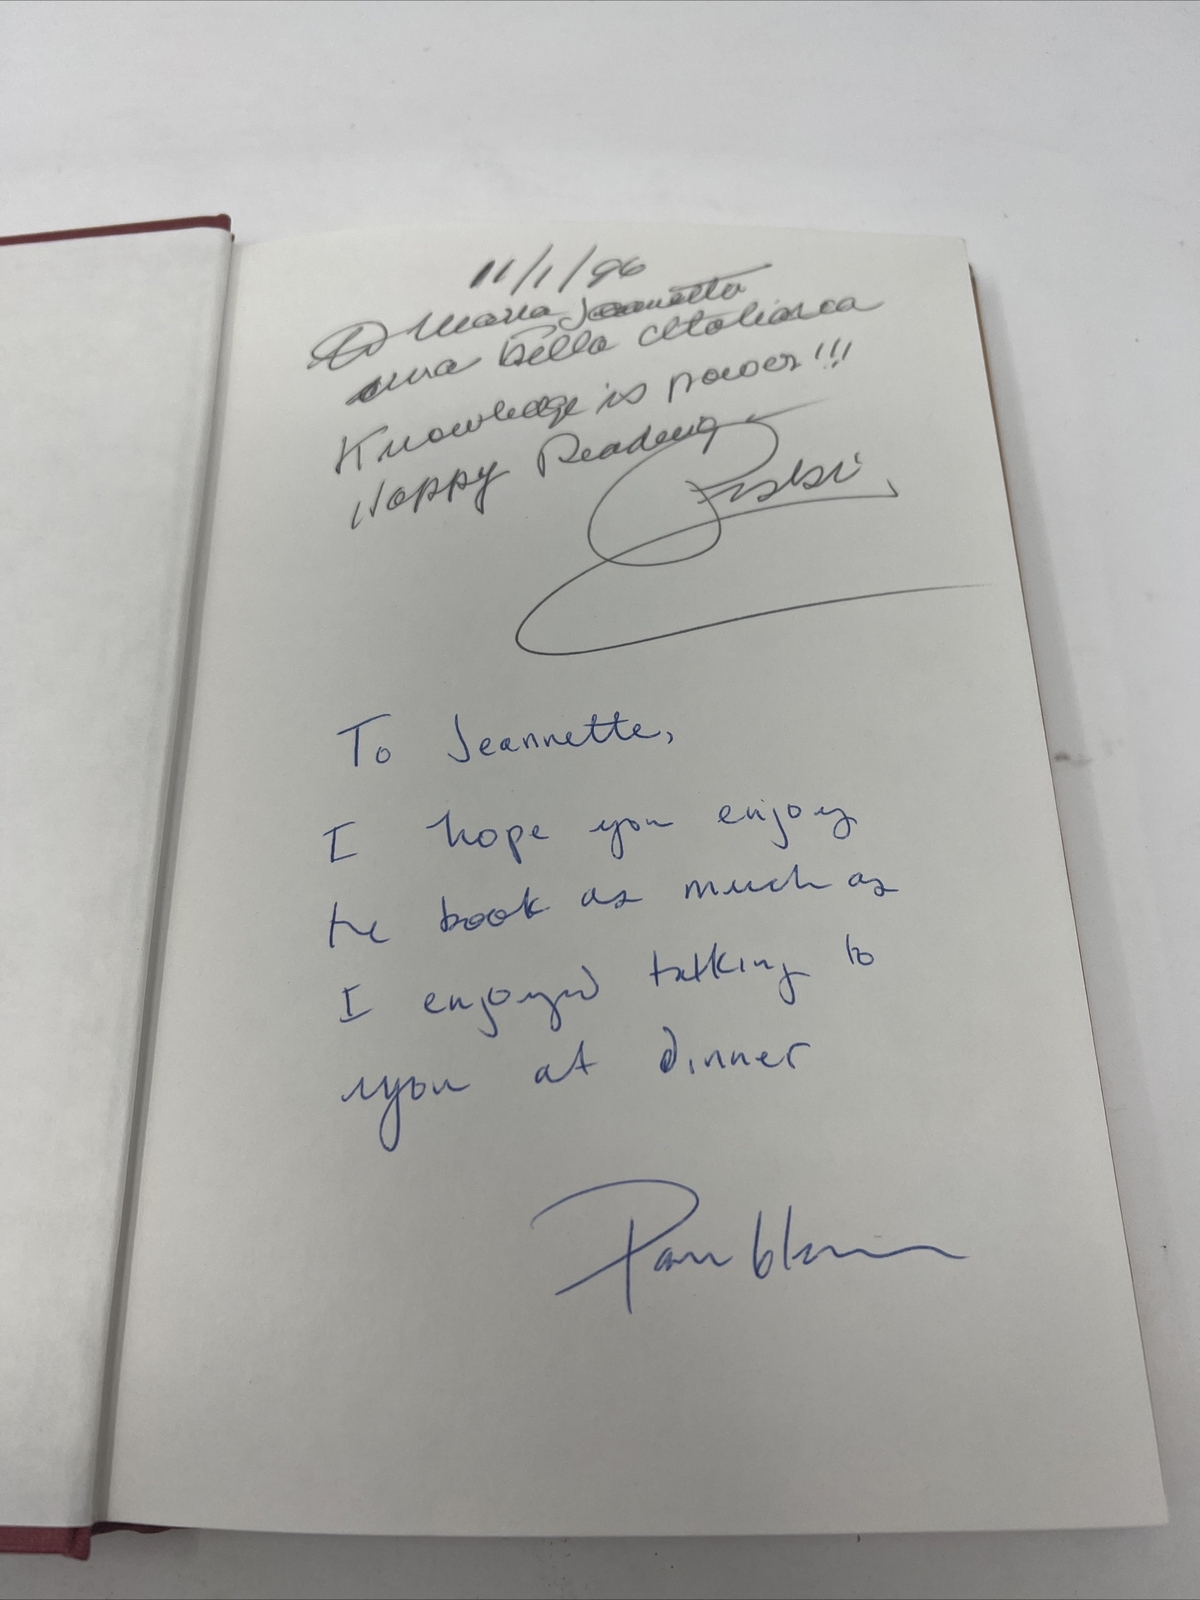 11/1/96
To Maria Jeannette
una bella Italiana
Knowledge is power!!!
Happy Reading
To Jeannette,
I hope you enjoy
the book as much as
I enjoyed talking to
you at dinner